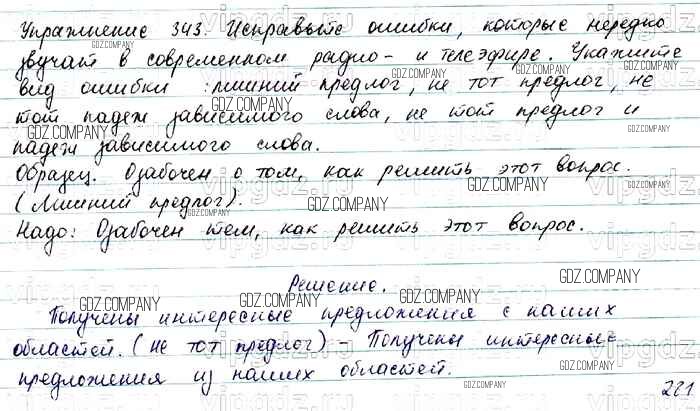 Упражнение 343. Исправьте ошибки, которые нередко
звучат в современном радио- и телеэфире. Укажите
вид ошибки : лишний предлог, не тот предлог, не
тот падеж зависимого слова, не тот предлог и
падеж зависимого слова.
Образец. Озабочен о том, как решить этот вопрос.
(Лишний предлог).
Надо: Озабочен тем, как решить этот вопрос.
Решение.
Получены интересные предложения с наших
областей. (не тот предлог) - Получены интересные
предложения из наших областей.
221
GDZ.COMPANY
vipgdz.ru